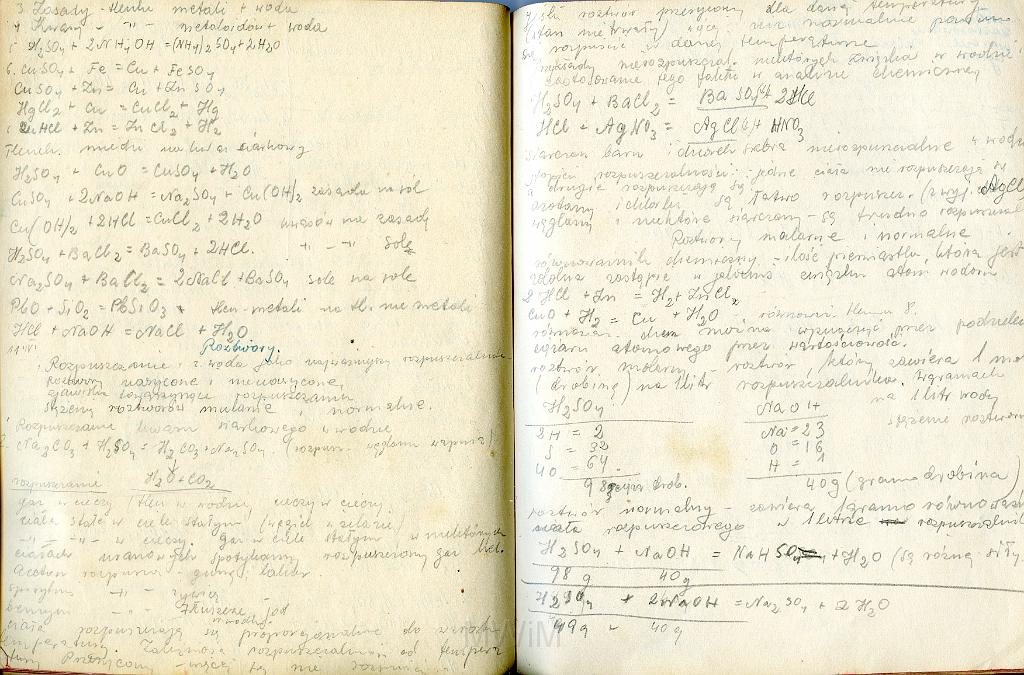 3. Zasady - tlenki metali + woda
4. Kwasy - " - metaloidów + woda
5. H2SO4 + 2NH4OH = (NH4)2SO4 + 2H2O
6. CuSO4 + Fe = Cu + FeSO4
CuSO4 + Zn = Cu + ZnSO4
HgCl2 + Cu = CuCl2 + Hg
2HCl + Zn = ZnCl2 + H2
Tlenek miedzi na kwas siarkowy
H2SO4 + CuO = CuSO4 + H2O
CuSO4 + 2NaOH = Na2SO4 + Cu(OH)2 zasada sól
Cu(OH)2 + 2HCl = CuCl2 + 2H2O kwasów na zasady
H2SO4 + BaCl2 = BaSO4 + 2HCl. " - " - sole
Na2SO4 + BaCl2 = 2NaCl + BaSO4 sole na sole
PbO + SiO2 = PbSiO3 tlen. metali na tl. nie metali
HCl + NaOH = NaCl + H2O
Roztwory.
Rozpuszczanie: woda jako najważniejszy rozpuszczalnik
roztwory nasycone i nienasycone,
zjawiska towarzyszące rozpuszczaniu
stężenie roztworów molarne i normalne.
Rozpuszczanie kwasu siarkowego w wodzie
Na2CO3 + H2SO4 = H2CO3 + Na2SO4 (rozpuszcz. węglanu
H2O + CO2
rozpuszczanie
gaz w cieczy (tlen w wodzie, cieczy w cieczy.
ciała stałe w ciele stałym (węgiel w żelazie)
" - " - w cieczy. gaz w ciele stałym w niektórych
ciałach uranowych spotykamy rozpuszczony gaz Hel.
Aceton rozpuszcza - gumę, lakier.
spirytus - " - żywicę
benzyna - " - tłuszcze, jod
ciała rozpuszczają się w wodzie proporcjonalnie do wzrostu
temperatury. Zależność rozpuszczalności od temper.
roztwór przesycony dla danej temperatury
(stan nietrwały) więcej niż normalnie powinno
rozpuścić w danej temperaturze.
nierozpuszczal. niektórych związków w wodzie
zastosowanie tego faktu w analizie chemicznej
H2SO4 + BaCl2 = BaSO4 + 2HCl
HCl + AgNO3 = AgCl + HNO3
siarczan baru i chlorek srebra nierozpuszczalne w wodzie
stopień rozpuszczalności: jedne ciała nie rozpuszczają się
a drugie rozpuszczają się
azotany i chlorki są łatwo rozpuszcz. (z wyj. AgCl)
węglany i niektóre siarczany - są trudno rozpuszczal.
Roztwory molarne i normalne
równoważnik chemiczny - ilość pierwiastka, która jest
zdolna zastąpić w jednym związku atom wodoru
2HCl + Zn = H2 + ZnCl2
CuO + H2 = Cu + H2O - równow. tlenu 8.
równoważ. chem. można wyznaczyć przez podzielenie
ciężaru atomowego przez wartościowość.
roztwór molarny - roztwór, który zawiera 1 mol
(drobinę) na 1 litr rozpuszczalnika. w gramach
na 1 litr wody
stężenie roztworu
H2SO4
2H = 2
S = 32
4O = 64.
98 g. drob.
NaOH
Na = 23
O = 16
H = 1
40g (gramodrobina)
roztwór normalny - zawiera 1 gramorównoważ.
ciała rozpuszczonego w 1 litrze rozpuszczalnika
H2SO4 + NaOH = NaHSO4 + H2O (są różnej siły.
98 g 40g
H2SO4 + 2NaOH = Na2SO4 + 2H2O
49g - 40g